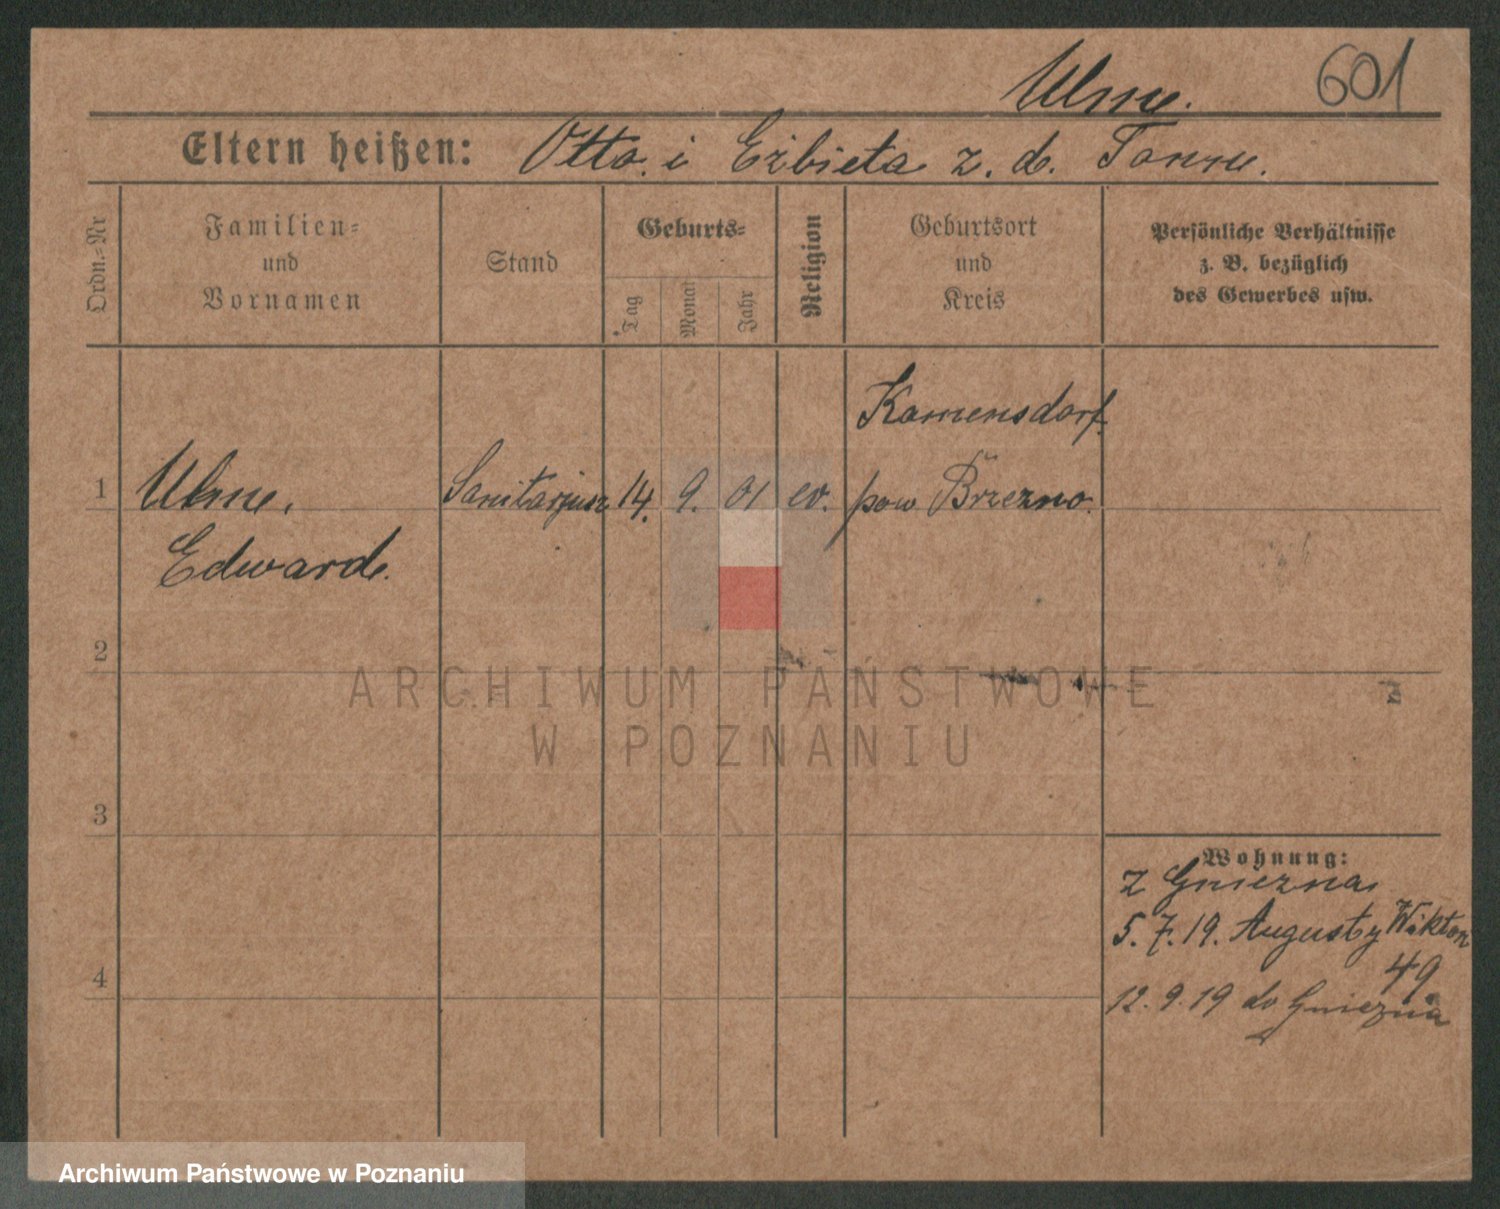 Ulme. 601
Eltern heißen: Otto i Elżbieta z. d. Tonne.
Ordn.-Nr
Familien-
und
Vornamen
Stand
Geburts-
Tag
Monat
Jahr
Religion
Geburtsort
und
Kreis
Persönliche Verhältnisse
z. B. bezüglich
des Gewerbes usw.
Kamensdorf.
1 Ulme. Sanitarjusz 14. 9. 01 ev. pow Brzezno.
Edward.
2
ARCHIWUM PAŃSTWOWE
W POZNANIU
3
Wohnung:
z Gniezna
5. 7. 19. Augusty Wiktor
49
4
12. 9. 19 do Gniezna
Archiwum Państwowe w Poznaniu